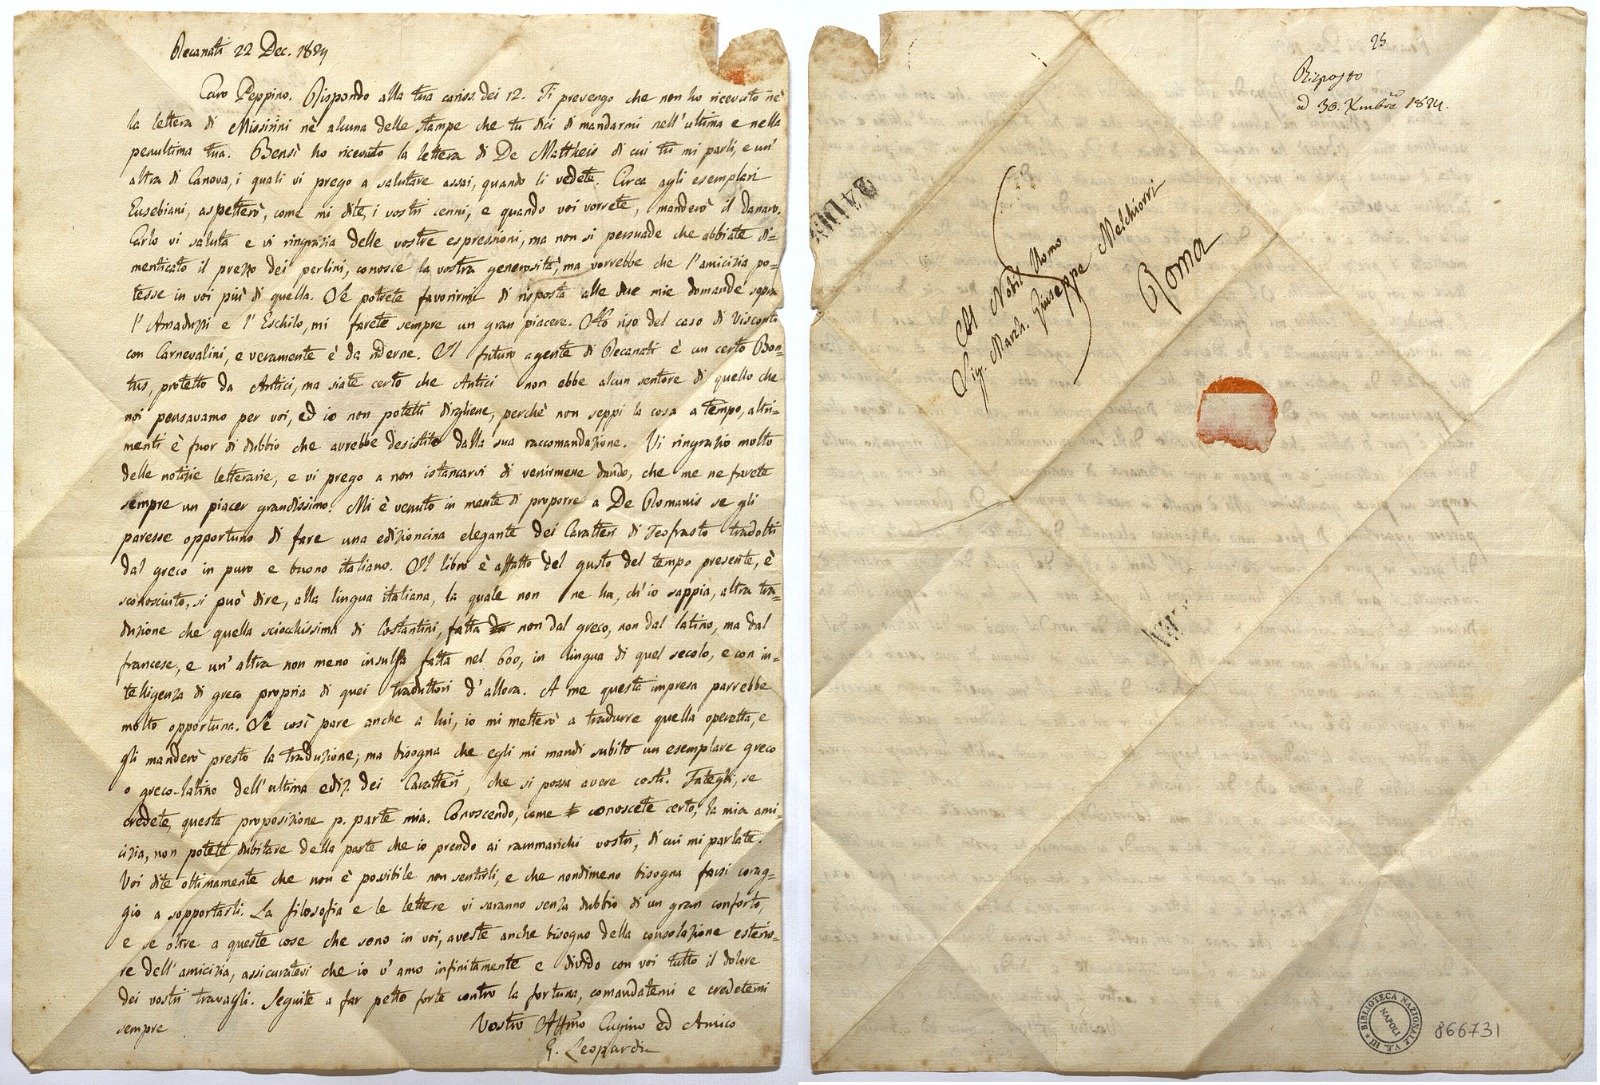 Recanati 22 Dec. 1824
Caro Peppino. Rispondo alla tua cariss. dei 12. Ti prevengo che non ho ricevuto nè
la lettera di Missirini nè alcuna delle stampe che tu dici di mandarmi nell'ultima e nella
penultima tua. Bensì ho ricevuto la lettera di De Mattheis di cui tu mi parli, e un'
altra di Canova, i quali vi prego a salutare assai, quando li vedete. Circa agli esemplari
Eusebiani, aspetterò, come mi dite, i vostri cenni, e quando voi vorrete, manderò il danaro.
Carlo vi saluta e vi ringrazia delle vostre espressioni, ma non si persuade che abbiate di=
menticato il prezzo dei perlini, conosce la vostra generosità, ma vorrebbe che l'amicizia po=
tesse in voi più di quella. Se potrete favorirmi di risposta alle due mie domande sopra
l'Amaduzzi e l'Eschilo, mi farete sempre un gran piacere. Ho riso del caso di Visconti
con Carnevalini, e veramente è da riderne. Il futuro agente di Recanati è un certo Bon=
tus, protetto da Antici, ma siate certo che Antici non ebbe alcun sentore di quello che
noi pensavamo per voi, ed io non potetti dirgliene, perchè non seppi la cosa a tempo, altri=
menti è fuor di dubbio che avrebbe desistito dalla sua raccomandazione. Vi ringrazio molto
delle notizie letterarie, e vi prego a non istancarvi di venirmene dando, che me ne farete
sempre un piacer grandissimo. Mi è venuto in mente di proporre a De Romanis se gli
paresse opportuno di fare una edizioncina elegante dei Caratteri di Teofrasto tradotti
dal greco in puro e buono italiano. Il libro è affatto del gusto del tempo presente, è
sconosciuto, si può dire, alla lingua italiana, la quale non ne ha, ch'io sappia, altra tra=
duzione che quella sciocchissima di Costantini, fatta non dal greco, non dal latino, ma dal
francese, e un'altra non meno insulsa fatta nel 600, in lingua di quel secolo, e con in=
telligenza di greco propria di quei traduttori d'allora. A me questa impresa parrebbe
molto opportuna. Se così pare anche a lui, io mi metterò a tradurre quella operetta, e
gli manderò presto la traduzione; ma bisogna che egli mi mandi subito un esemplare greco
o greco-latino dell'ultima ediz. dei Caratteri, che si possa avere costì. Fategli, se
credete, questa proposizione p. parte mia. Conoscendo, come conoscete certo, la mia ami=
cizia, non potete dubitare della parte che io prendo ai rammarichi vostri, di cui mi parlate.
Voi dite ottimamente che non è possibile non sentirli, e che nondimeno bisogna farsi corag=
gio a sopportarli. La filosofia e le lettere vi saranno senza dubbio di un gran conforto,
e se oltre a queste cose che sono in voi, aveste anche bisogno della consolazione esterio=
re dell'amicizia, assicuratevi che io v'amo infinitamente e divido con voi tutto il dolore
dei vostri travagli. Seguite a far petto forte contro la fortuna, comandatemi e credetemi
sempre Vostro Affmo Cugino ed Amico
G. Leopardi
23
Risposto
ad 30. Xmbre 1824.
Al Nobil Uomo
Sig. March. Giuseppe Melchiorri
Roma
BIBLIOTECA NAZIONALE V. E. III
NAPOLI
866731